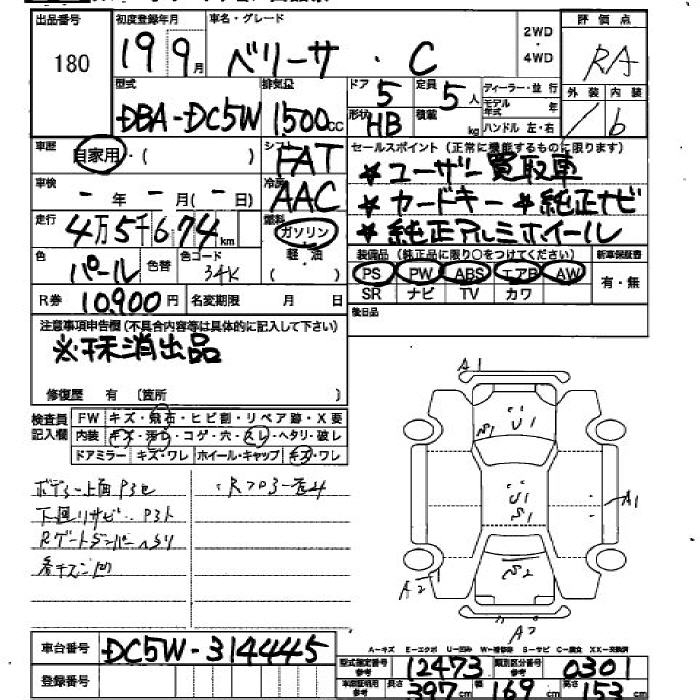 出品番号 初度登録年月 車名・グレード 2WD・4WD 評価点
180 19 9月 ベリーサ・C RA
型式 排気量 ドア 5 定員 5人 ディーラー・並行 外装 内装
DBA-DC5W 1500cc 形状 HB 積載 kg モデル年式 年 ハンドル 左・右 b
車歴 自家用・( ) シフト FAT セールスポイント(正常に機能するものに限ります)
車検 -年 -月(-日) 冷房 AAC ★ユーザー買取車
走行 4万5千674km 燃料 ガソリン・軽・油 ★カードキー★純正ナビ
★純正アルミホイール
色 パール 色替 色コード 34K 装備品(純正品に限り○をつけてください) 新車保証書
PS PW ABS エアB AW 有・無
R券 10,900円 名変期限 月 日 SR ナビ TV カワ
注意事項申告欄(不具合内容等は具体的に記入して下さい) 後日品
※抹消出品
修復歴 有 〔箇所 〕
検査員記入欄 FW キズ・飛石・ヒビ割・リペア跡・X要
内装 キズ・汚れ・コゲ・穴・スレ・ヘタリ・破レ
ドアミラー キズ・ワレ ホイール・キャップ キズ・ワレ
A1
U1
S1
U1
S1
A1
S2
A2
A2
車台番号 DC5W-314445
A-キズ E-エクボ U-凹み W-補修跡 S-サビ C-腐食 XX-交換済
登録番号 型式指定番号 参考 12473 類別区分番号 参考 0301
車庫証明用 参考 長さ 397cm 幅 169cm 高さ 153cm